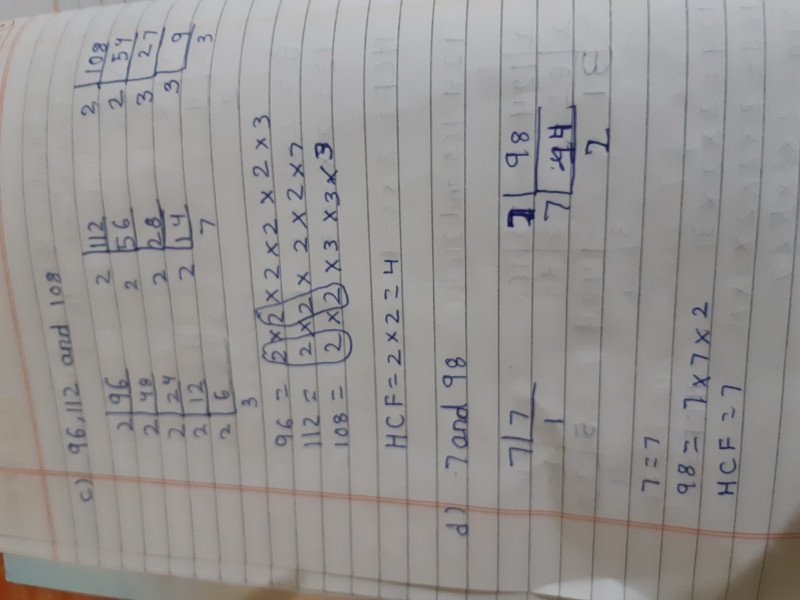 c) 96, 112 and 108
2 | 96    2 | 112    2 | 108
2 | 48    2 | 56    2 | 54
2 | 24    2 | 28    3 | 27
2 | 12    2 | 14    3 | 9
2 | 6    7    3
3
96 = 2 × 2 × 2 × 2 × 2 × 3
112 = 2 × 2 × 2 × 2 × 7
108 = 2 × 2 × 3 × 3 × 3
HCF = 2 × 2 = 4
d) 7 and 98
7 | 7    7 | 98
1    7 | 14
2
7 = 7
98 = 7 × 7 × 2
HCF = 7